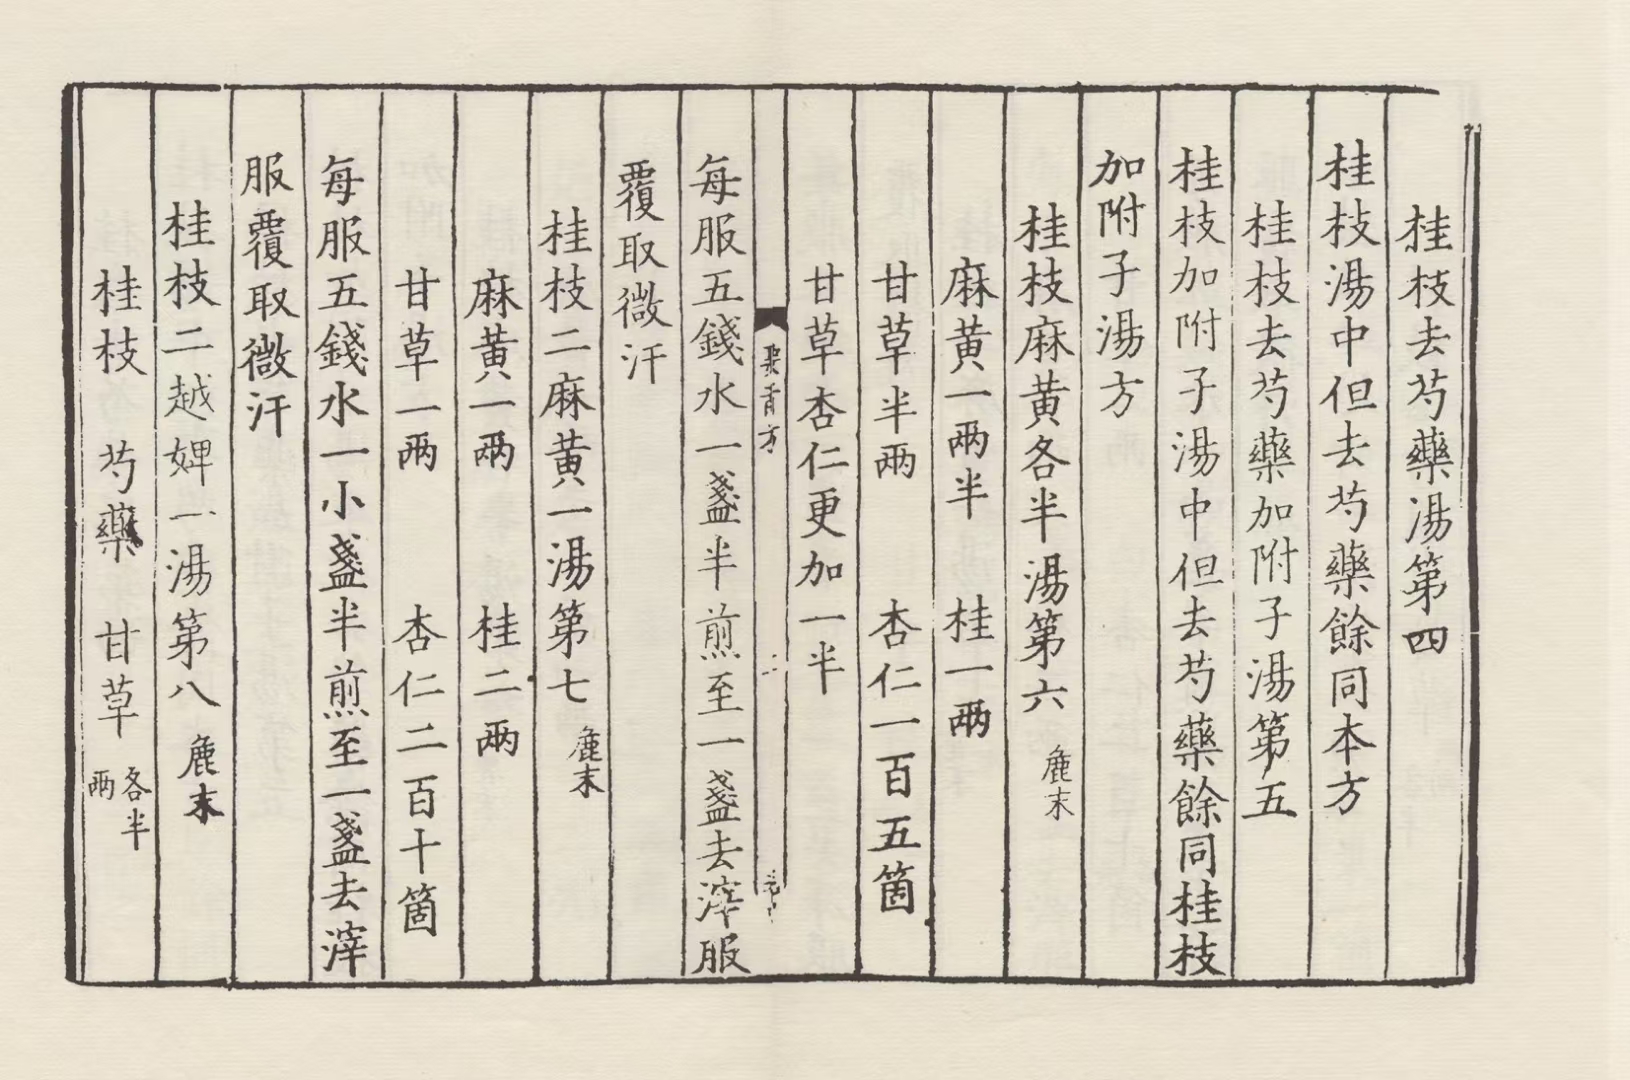 桂枝去芍藥湯第四
桂枝湯中但去芍藥餘同本方
桂枝去芍藥加附子湯第五
桂枝加附子湯中但去芍藥餘同桂枝
加附子湯方
桂枝麻黄各半湯第六 麄末
麻黄一兩半 桂一兩
甘草半兩 杏仁一百五箇
甘草杏仁更加一半
每服五錢水一盞半煎至一盞去滓服
覆取微汗
桂枝二麻黄一湯第七 麄末
麻黄一兩 桂二兩
甘草一兩 杏仁二百十箇
每服五錢水一小盞半煎至一盞去滓
服覆取微汗
桂枝二越婢一湯第八 麄末
桂枝 芍藥 甘草 各半兩